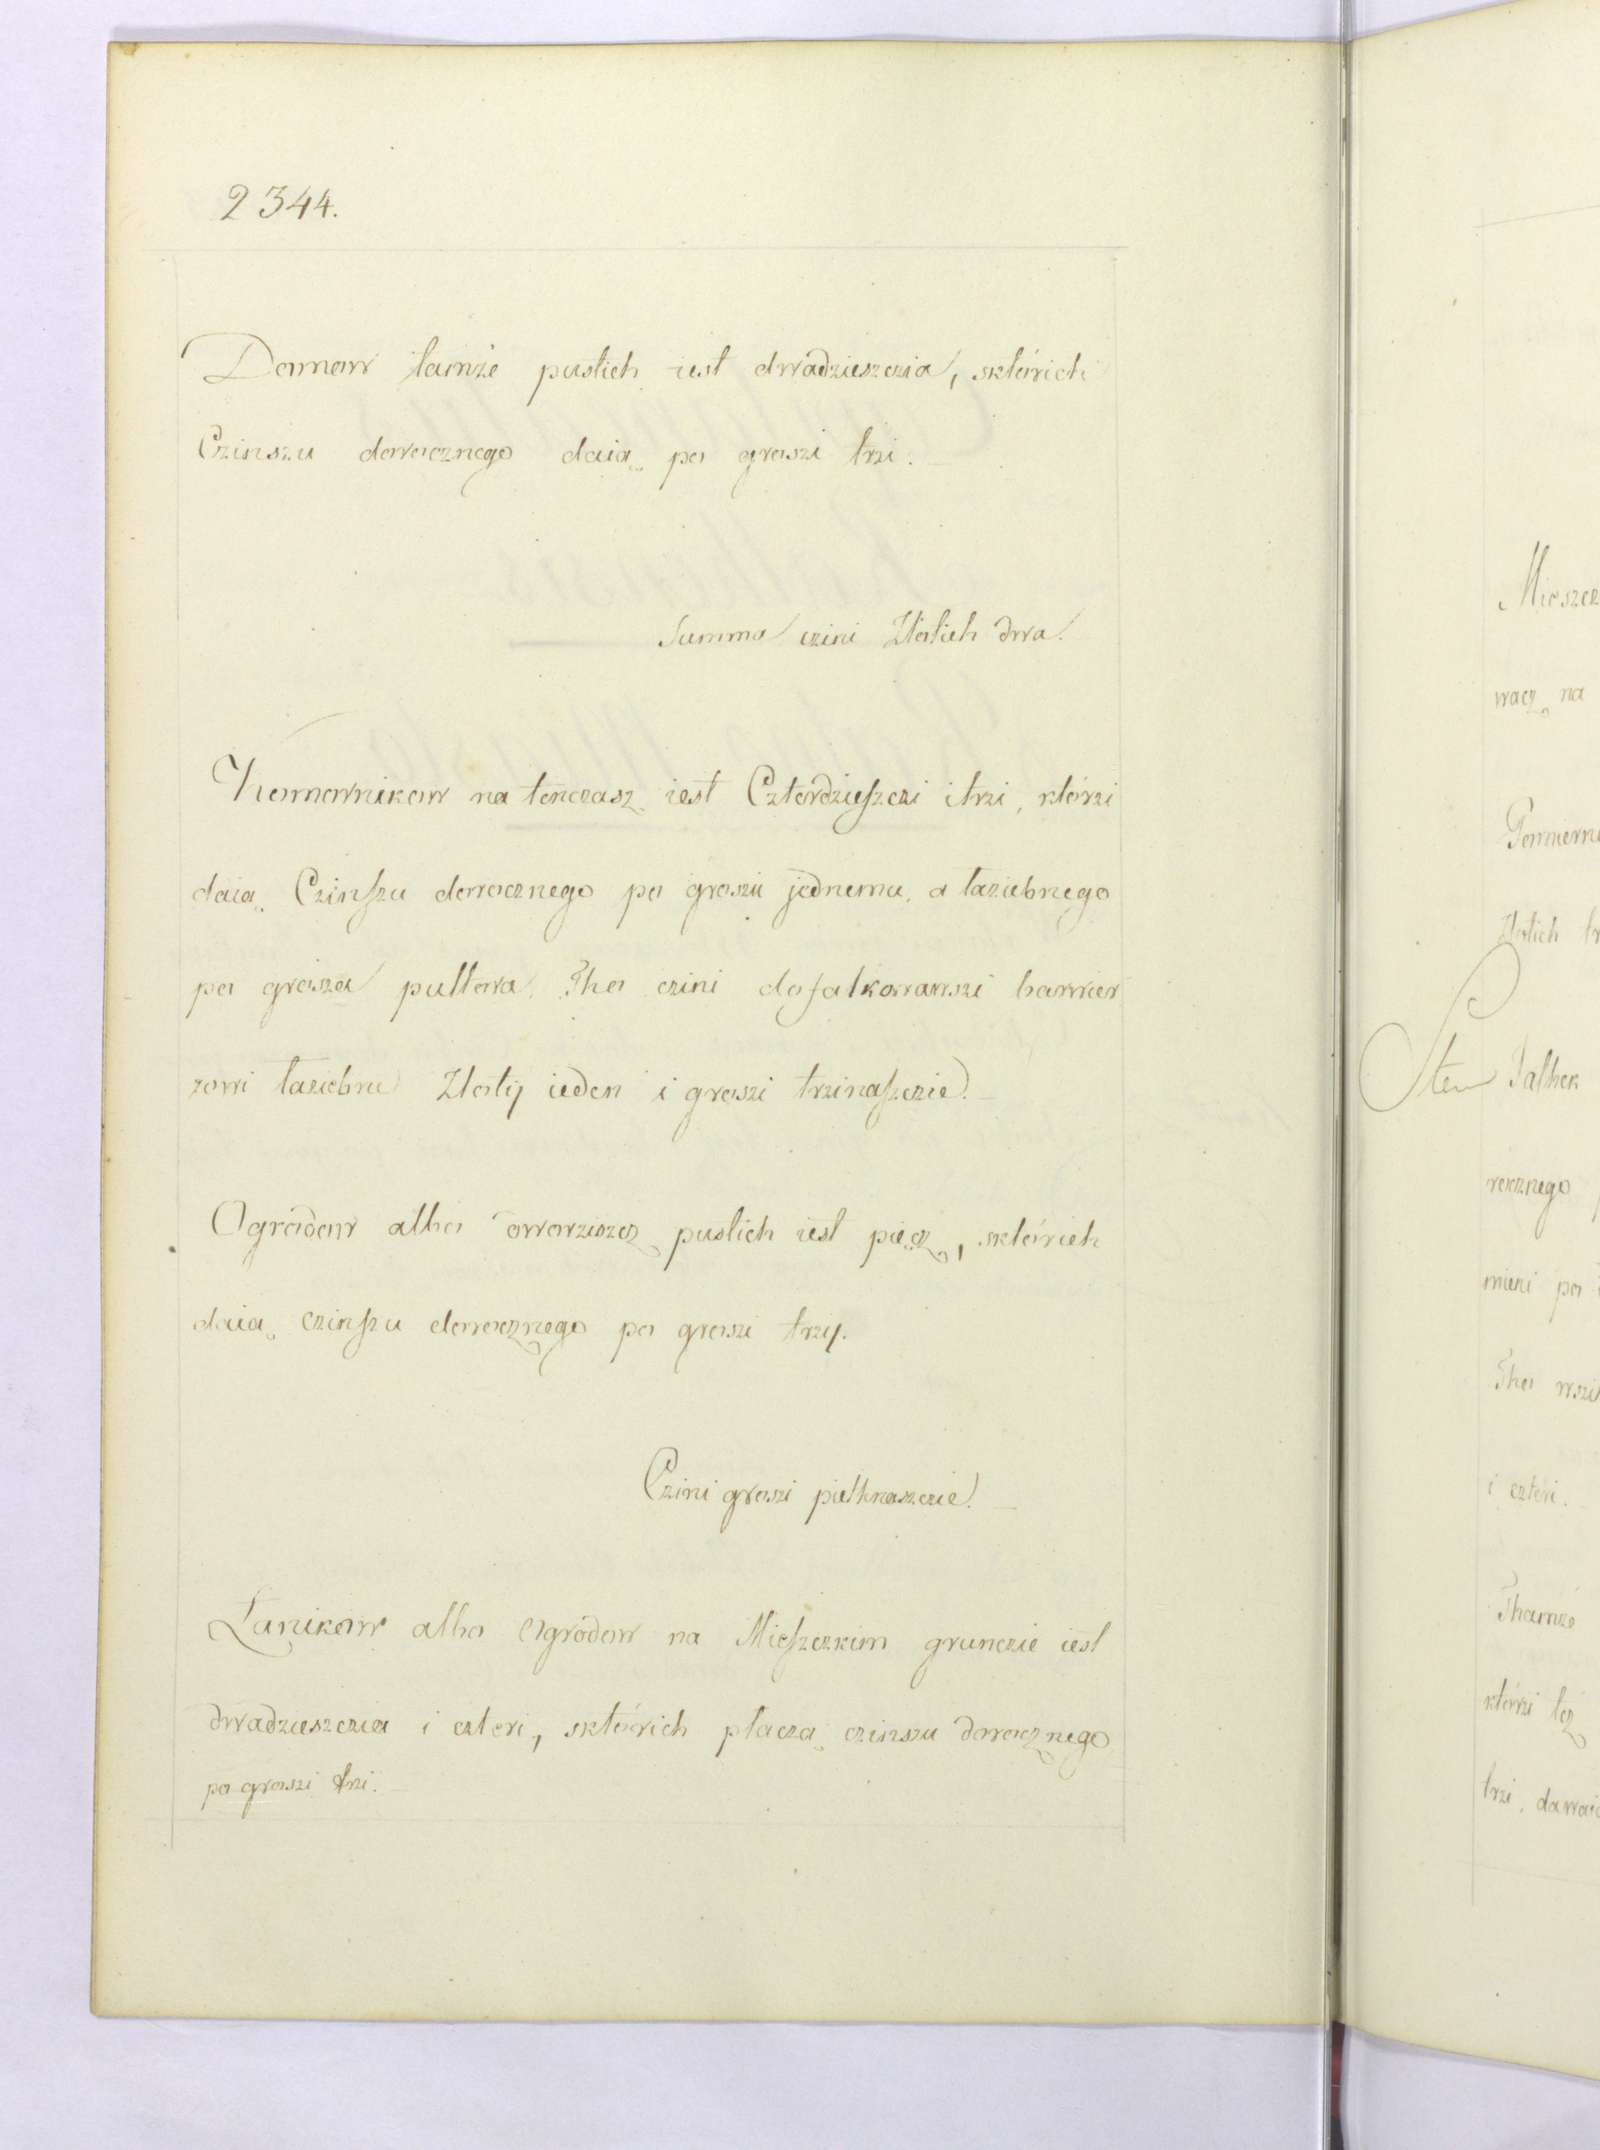 2344.
Domow tamże pustich iest dwadzieszczia, sktórich
Czinszu dorocznego daią po groszi trzi.
Summa czini Złotich dwa.
Komornikow na tenczasz iest Czterdzieszczi i trzi, którzi
daią Czinszu dorocznego po groszu jednemu, a łaziebnego
po grosza pułtora. Tho czini dofalkowawszi barwier
zowi łaziebne Złoty ieden i groszi trzinaszczie.
Ogrodow albo oworziszcz pustich iest pięcz, sktórich
daią czinszu dorocznego po groszi trzy.
Czini groszi piethnaszczie.
Łanikow albo Ogrodow na Mieszczkim grunczie iest
dwadzieszczia i czteri, sktórich płaczą czinszu dorocznego
po groszi trzi.
Mieszcz
wacz na
Złotich tr
Sten Falher
rocznego p
mieni po
Tho wszi
i czteri.
Thamże
którzi też
trzi, dawaią